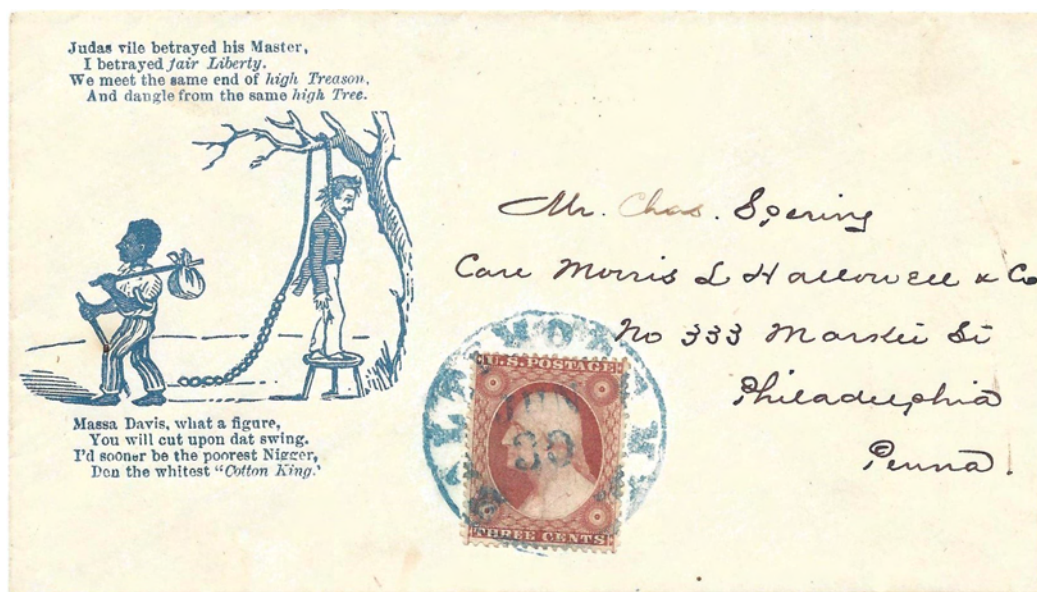 Judas vile betrayed his Master,
I betrayed fair Liberty.
We meet the same end of high Treason,
And dangle from the same high Tree.
Massa Davis, what a figure,
You will cut upon dat swing.
I'd sooner be the poorest Nigger,
Den the whitest "Cotton King.'
Mr. Chas. Spering
Care Morris L Hallowell & Co
No 333 Market St
Philadelphia
Penna.
U.S. POSTAGE
30
THREE CENTS